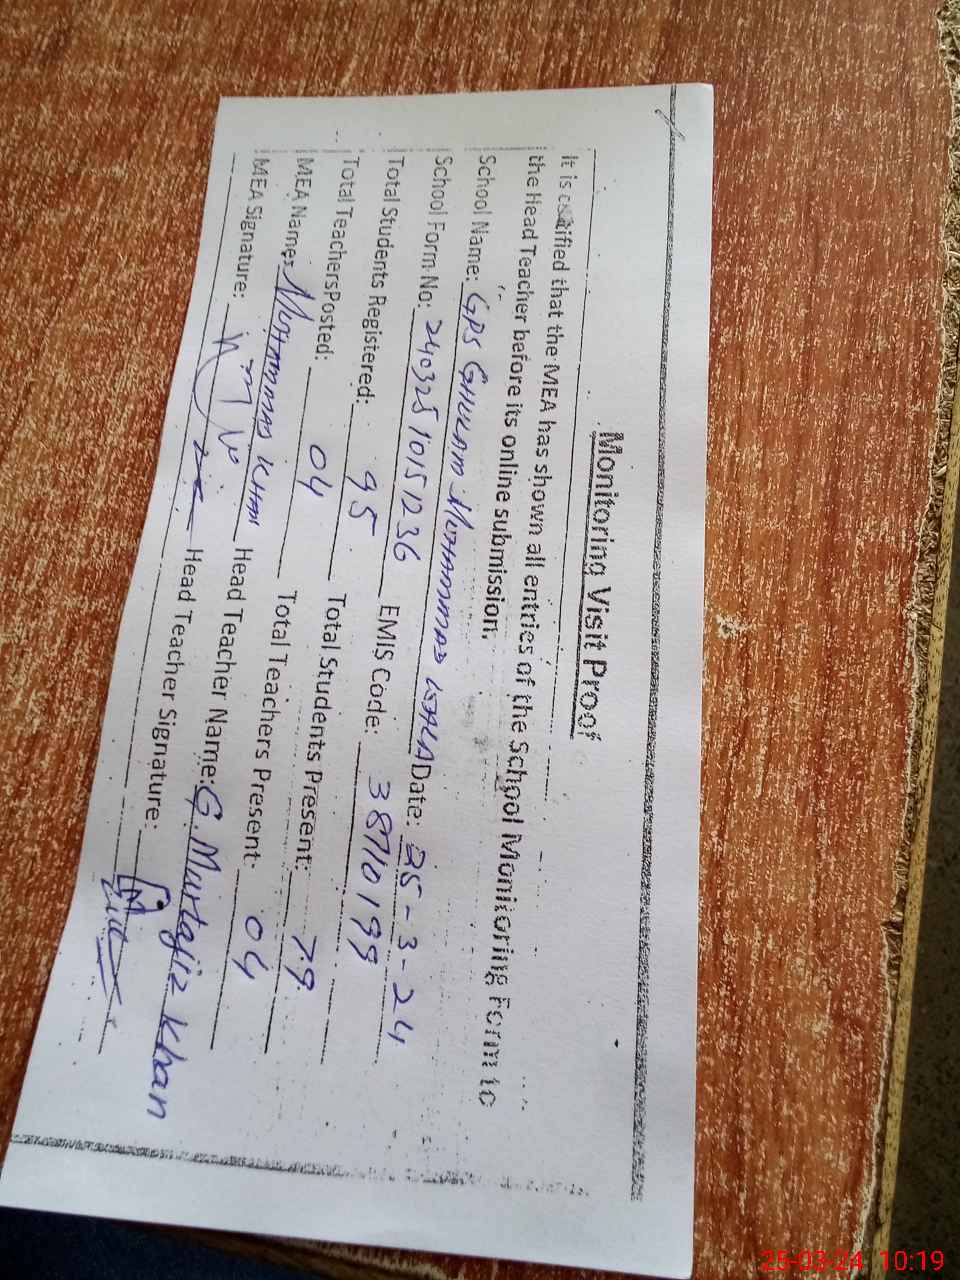 Monitoring Visit Proof
It is certified that the MEA has shown all entries of the School Monitoring Form to
the Head Teacher before its online submission.
School Name: GPS GHULAM MUHAMMAD WALA Date: 25-3-24
School Form No: 24032510151236 EMIS Code: 38710199
Total Students Registered: 95 Total Students Present: 79
Total TeachersPosted: 04 Total Teachers Present: 04
MEA Name: MUHAMMAD KHAN Head Teacher Name: G. Murtajiz Khan
MEA Signature: Head Teacher Signature:
25-03-24 10:19